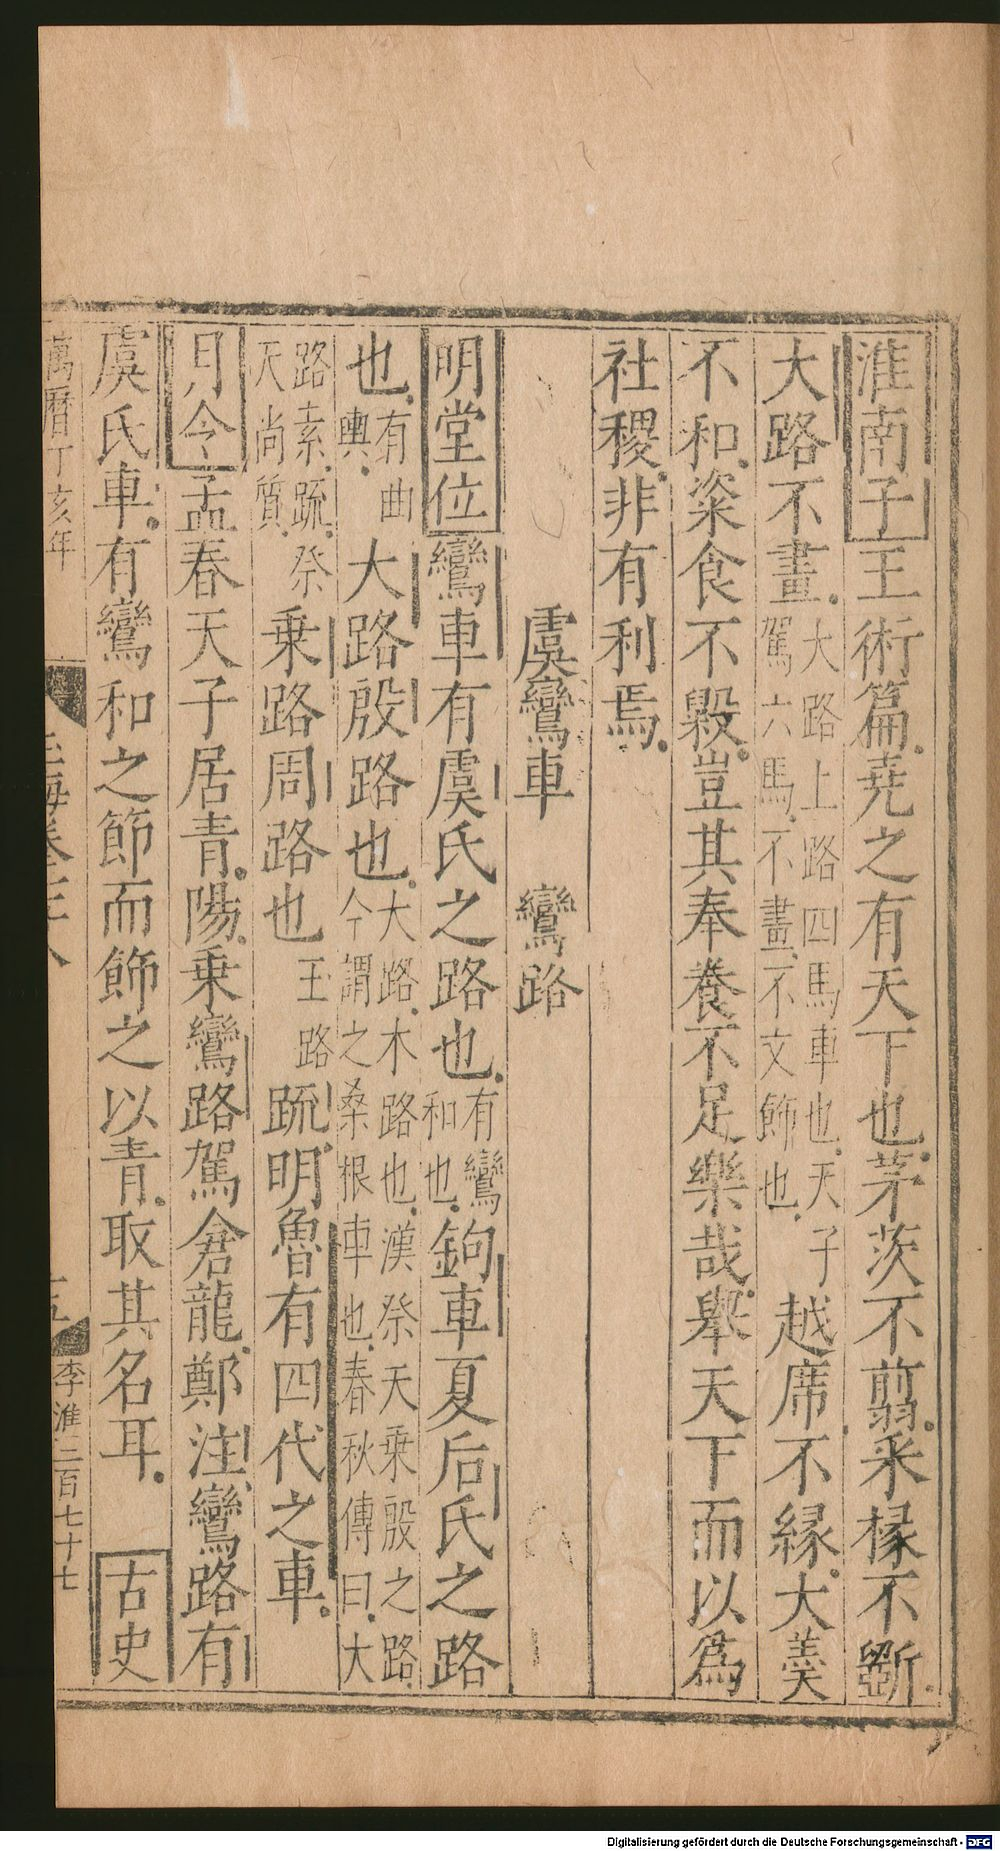 淮南子王術篇堯之有天下也茅茨不翦采椽不斲
大路不畫大路上路四馬車也天子駕六馬不畫不文飾也越席不緣大羹
不和粢食不毇豈其奉養不足樂哉舉天下而以爲
社稷非有利焉
虞鸞車 鸞路
明堂位鸞車有虞氏之路也有鸞和也鉤車夏后氏之路
也有曲輿大路殷路也大路木路也漢祭天乗殷之路今謂之桑根車也春秋傳曰大
路素疏祭天尚質乗路周路也玉路疏明魯有四代之車
月令孟春天子居青陽乗鸞路駕倉龍鄭注鸞路有
虞氏車有鸞和之節而飾之以青取其名耳 古史
萬曆丁亥年 玉海卷七十八 十五 李淮三百七十七
Digitalisierung gefördert durch die Deutsche Forschungsgemeinschaft - DFG